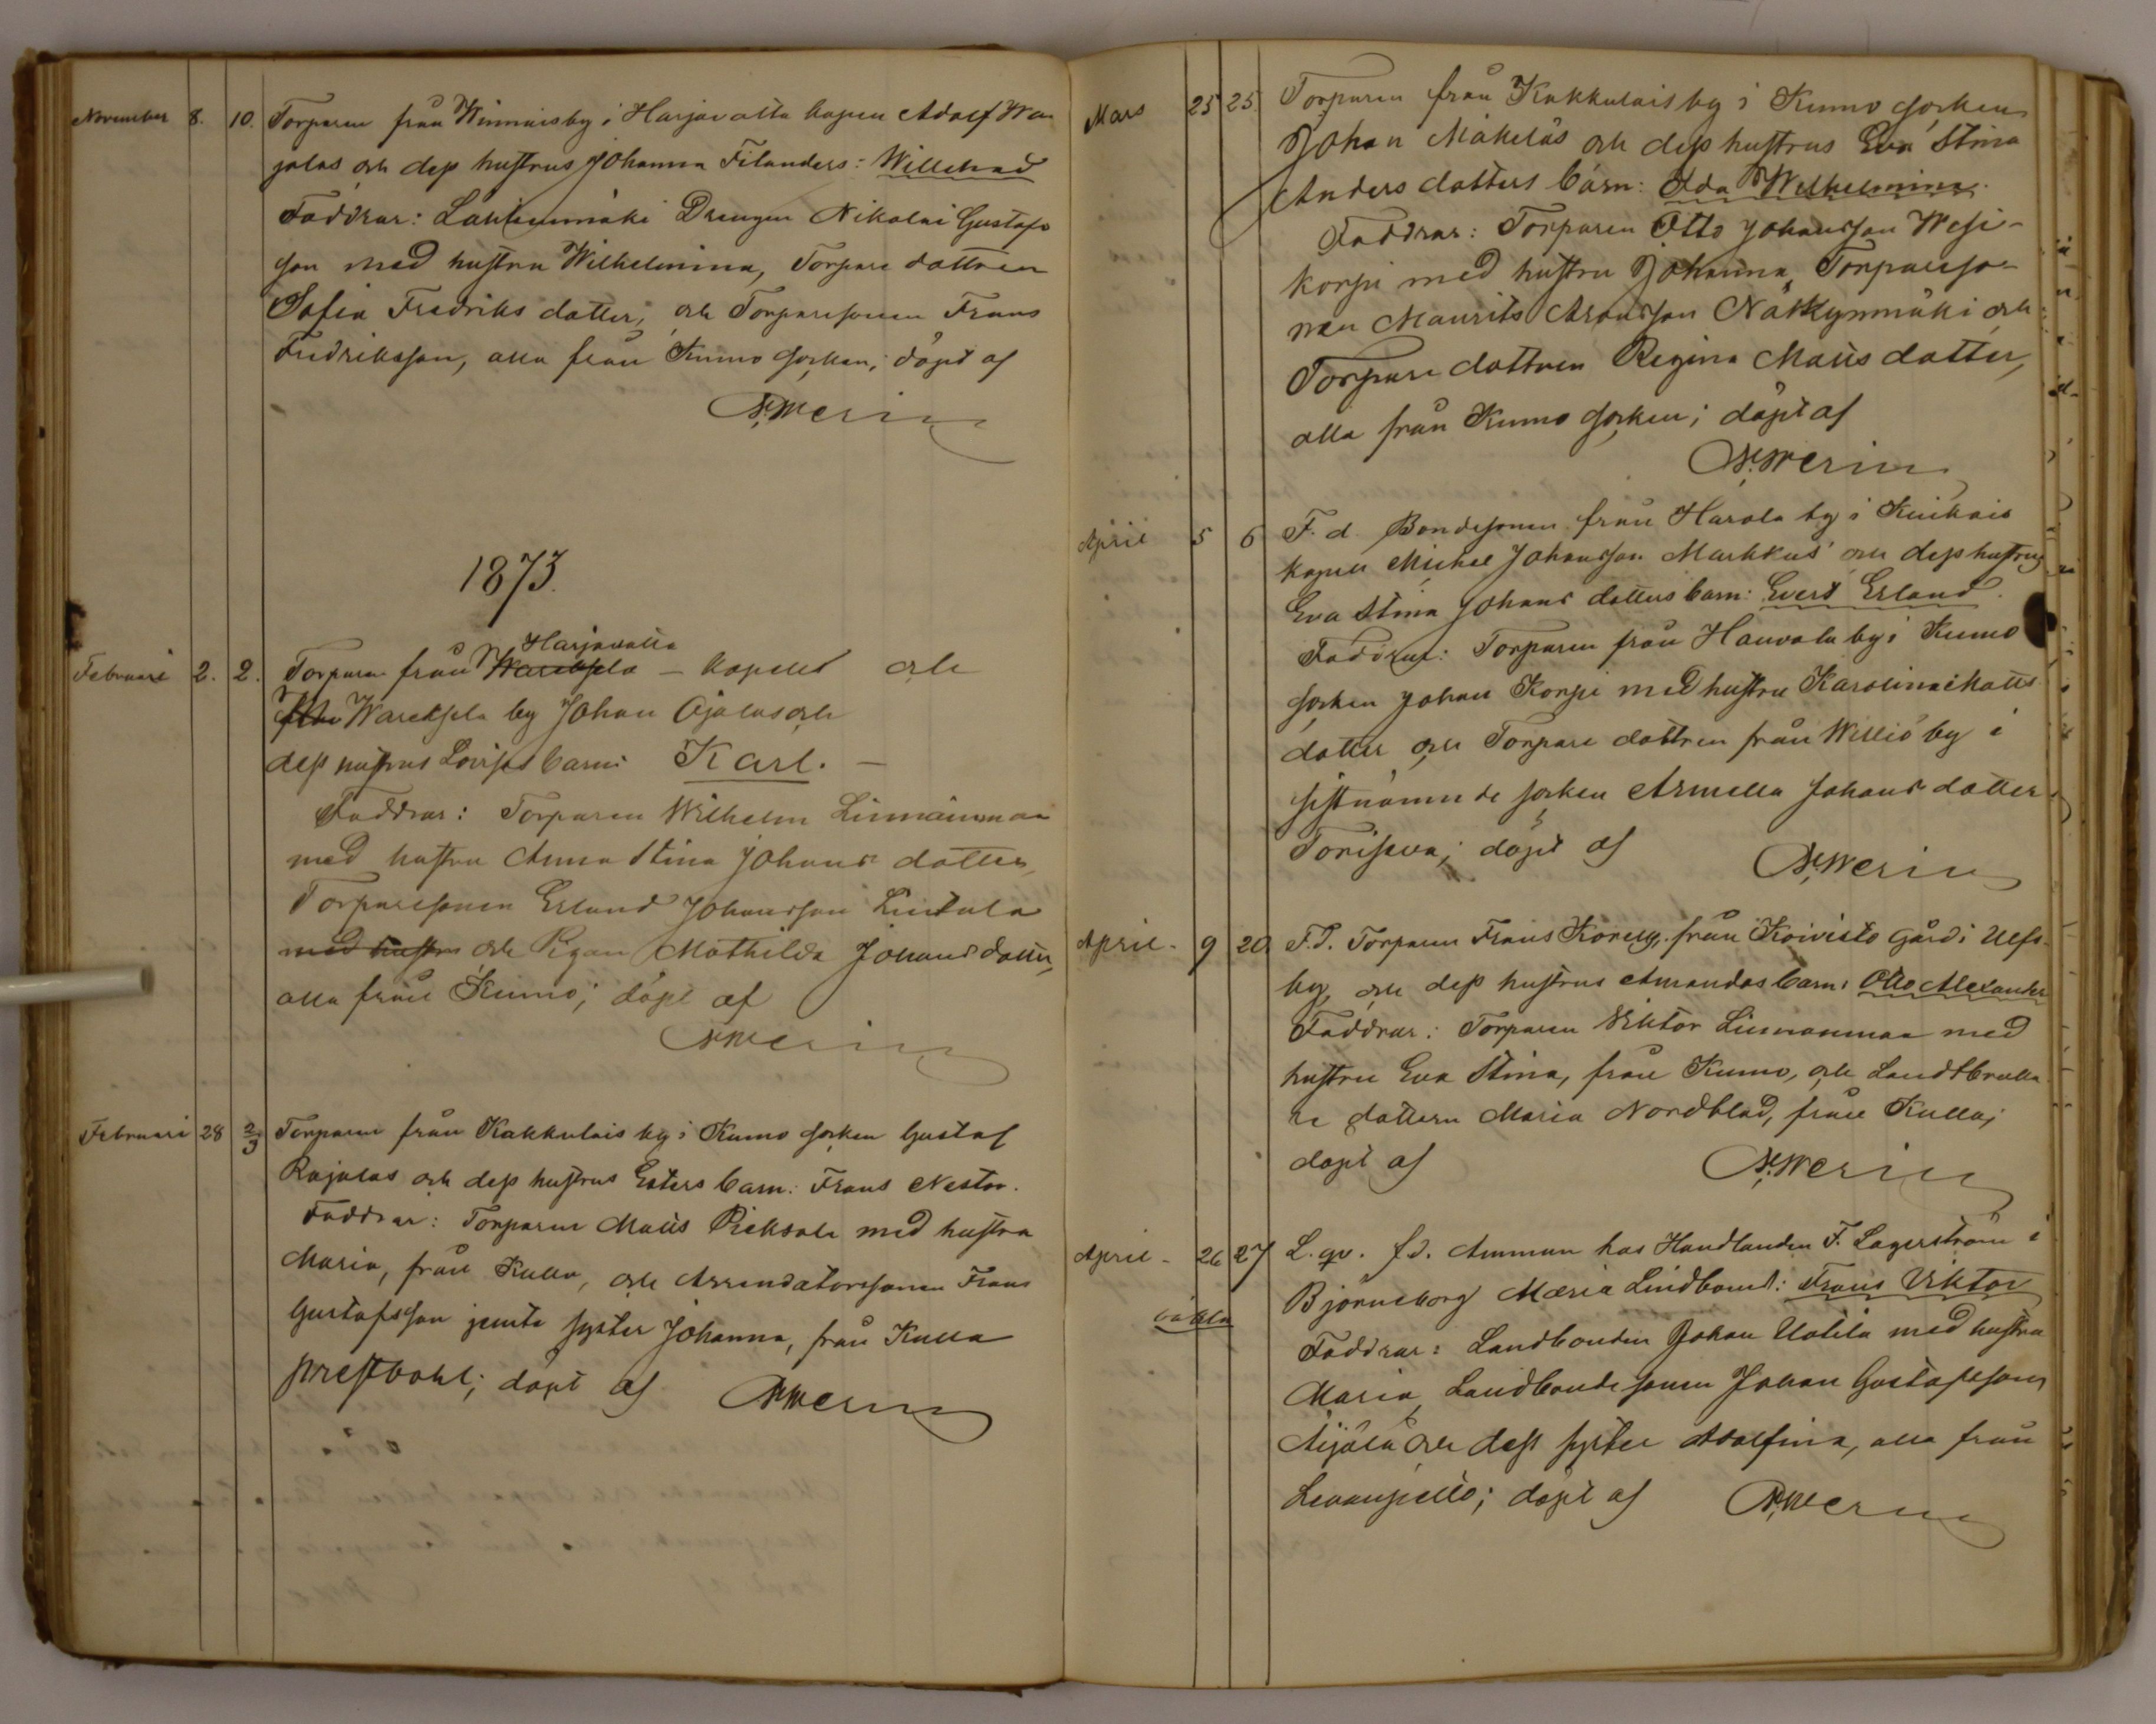 November 8. 10. Torparen från Winnais by i Harjavalta kapell Adolf Wai
jalas och dess hustrus Johanna Filanders: Willehad
Faddrar: Lähteenmäki Drengen Nikolai Gustafs
son med hustru Wilhelmina, Torpare dottren
Sofia Fredriks dotter, och Torparesonen Frans
Fredriksson, alla från Kumo socken; döpt af
N. Merin
1873.
Harjavalta
Februari 2. 2. Torparen från Wareksela - kapell och
Wareksela by Johan Ojalas och
dess hustrus Lovisas barn: Karl. -
Faddrar: Torparen Wilhelm Linnainmaa
med hustru Anna Stina Johans dotter,
Torparesonen Erland Johansson Lintula
med hustru och Pigan Mathilda Johans dotter,
alla från Kumo; döpt af
N. Merin
Februari 28 2/3 Torparen från Kakkulais by i Kumo socken Gustaf
Rajalas och dess hustrus Esters barn: Frans Nestor.
Faddrar: Torparen Matts Pieksala med hustru
Maria, från Kulla, och Arrendatorssonen Frans
Gustafsson jemte syster Johanna, från Kulla
prestbohl; döpt af N. Merin
Mars 25 25 Torparen från Kakkulais by i Kumo socken
Johan Mäkeläs och dess hustrus Eva Stina
Anders dotters barn: Ida Wilhelmina.
Faddrar: Torparen Otto Johansson Wesi-
korpi med hustru Johanna, Torpareso-
nen Maurits Aronsson Näkkynmäki och
Torpare dottren Regina Matts dotter,
alla från Kumo socken; döpt af
N. Merin
April 5 6 F. d. Bondesonen från Harola by i Kiukais
kapell Michel Johansson Markkus och dess hustrus
Eva Stina Johans dotters barn: Evert Erland.
Faddrar: Torparen från Hanvola by i Kumo
socken Johan Korpi med hustru Karolina Matts
dotter och Torpare dottren från Williö by i
sistnämnde socken Armella Johans dotter
Toriseva; döpt af N. Merin
April - 9 20 F. d. Torparen Frans från Koivisto gård i Ulfs-
by, och dess hustrus Amandas barn: Otto Alexander
Faddrar: Torparen Viktor Linnanmaa med
hustru Eva Stina, från Kumo, och Landtbruka
re dottern Maria Nordblad, från Kulla;
döpt af N. Merin
April - 26 27 L. qv. f.d. Amman hos Handlanden F. Lagerström i
Björneborg Maria Lindbom: Frans Viktor
oäkta
Faddrar: Landbonden Johan Uotila med hustru
Maria, Landbondesonen Johan Gustafsson
Äijälä och dess syster Adolfina, alla från
Levanpelto; döpt af N. Merin